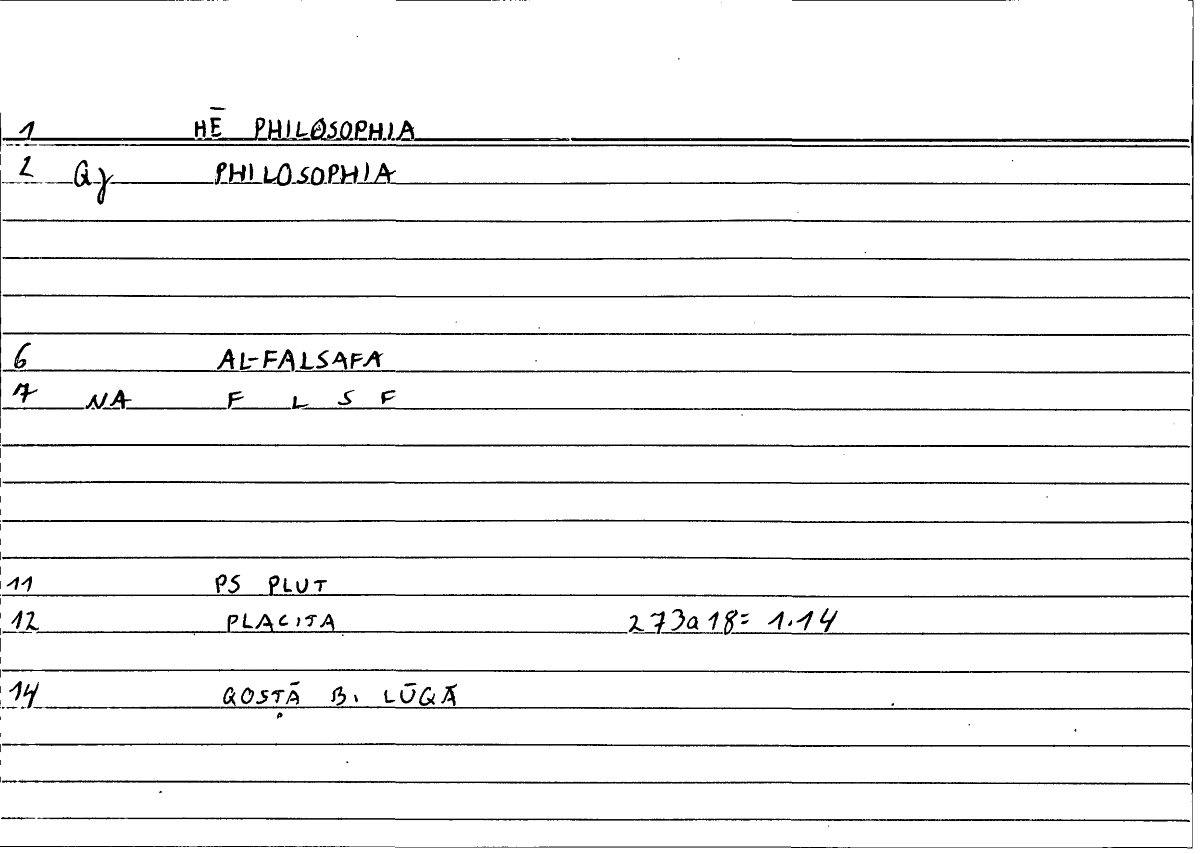 1 HĒ PHILOSOPHIA
2 Qγ PHILOSOPHIA
6 AL-FALSAFA
7 NA F L S F
11 PS PLUT
12 PLACITA 273a18= 1.14
14 QOSṬĀ B. LŪQĀ